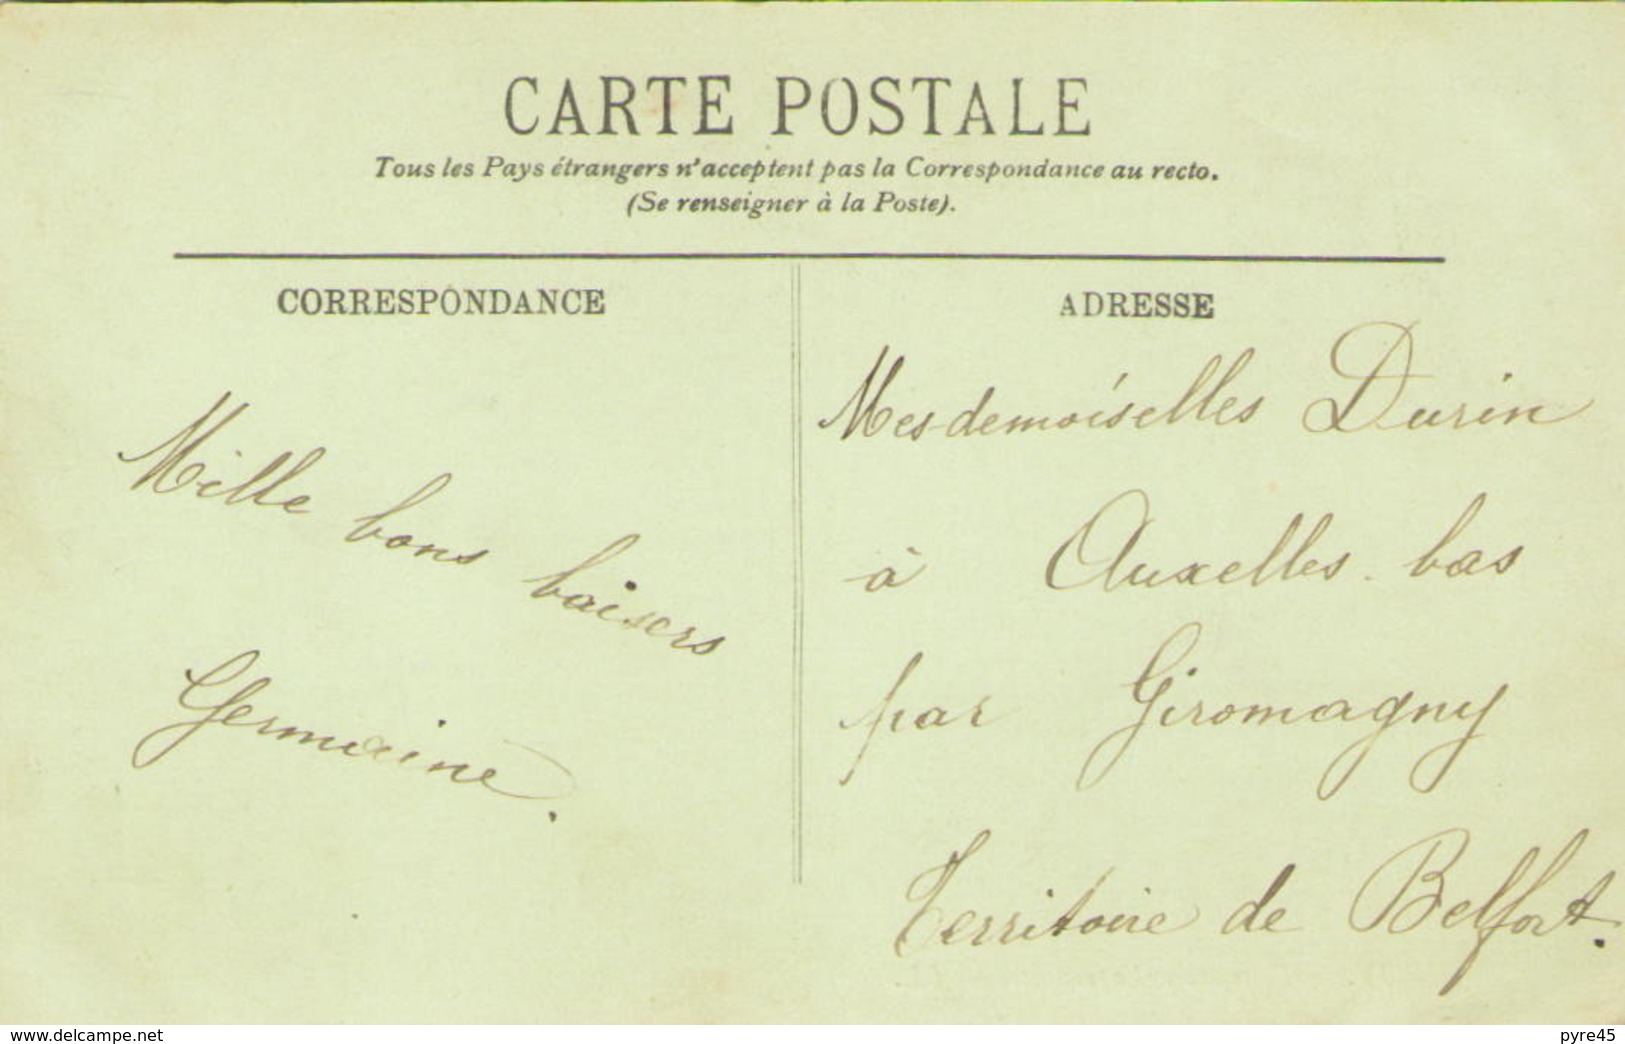 CARTE POSTALE
Tous les Pays étrangers n'acceptent pas la Correspondance au recto.
(Se renseigner à la Poste).
CORRESPONDANCE
Mille bons baisers
Germaine.
ADRESSE
Mesdemoiselles Durin
à Auxelles-bas
par Giromagny
Territoire de Belfort.
www.delcampe.net
pyre45